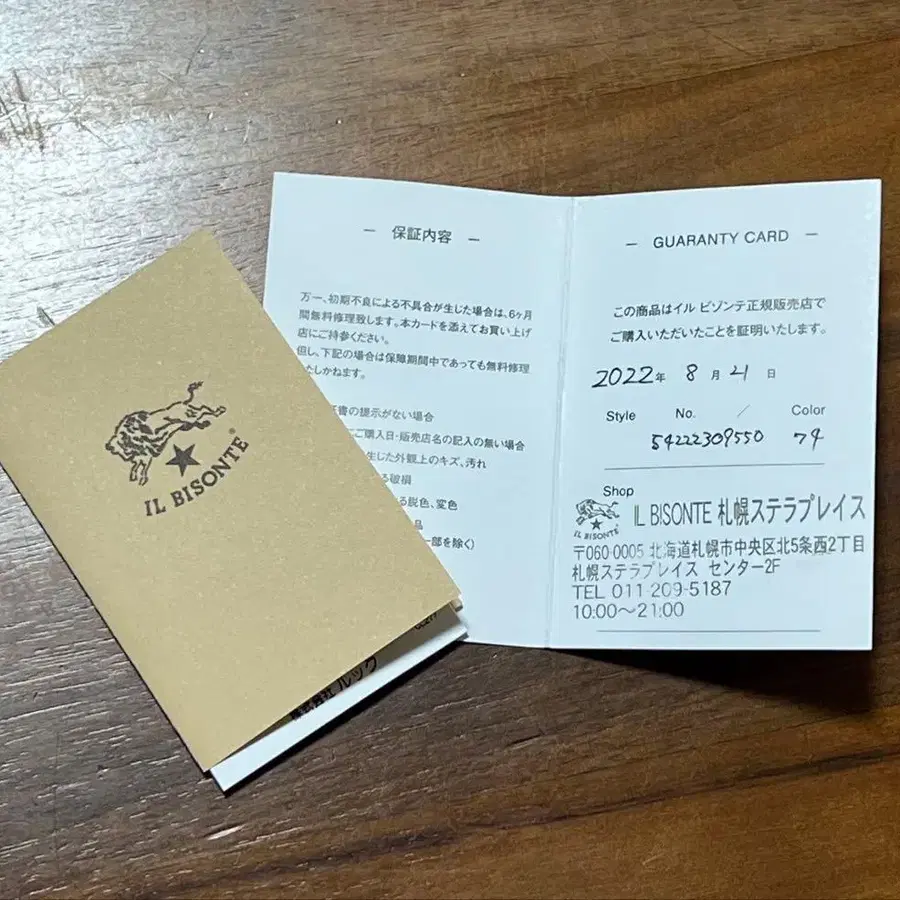 IL BISONTE
株式会社ルック
― 保証内容 ―
万一、初期不良による不具合が生じた場合は、6ヶ月
間無料修理致します。本カードを添えてお買い上げ
店にご持参ください。
但し、下記の場合は保障期間中であっても無料修理
たしかねます。
書の提示がない場合
ご購入日・販売店名の記入の無い場合
生じた外観上のキズ、汚れ
る破損
る脱色、変色
品
一部を除く)
― GUARANTY CARD ―
この商品はイル ビゾンテ正規販売店で
ご購入いただいたことを証明いたします。
2022年 8月 21日
Style No. / Color
54222309550 74
Shop
IL BISONTE IL BISONTE 札幌ステラプレイス
〒060-0005 北海道札幌市中央区北5条西2丁目
札幌ステラプレイス センター2F
TEL 011-209-5187
10:00〜21:00